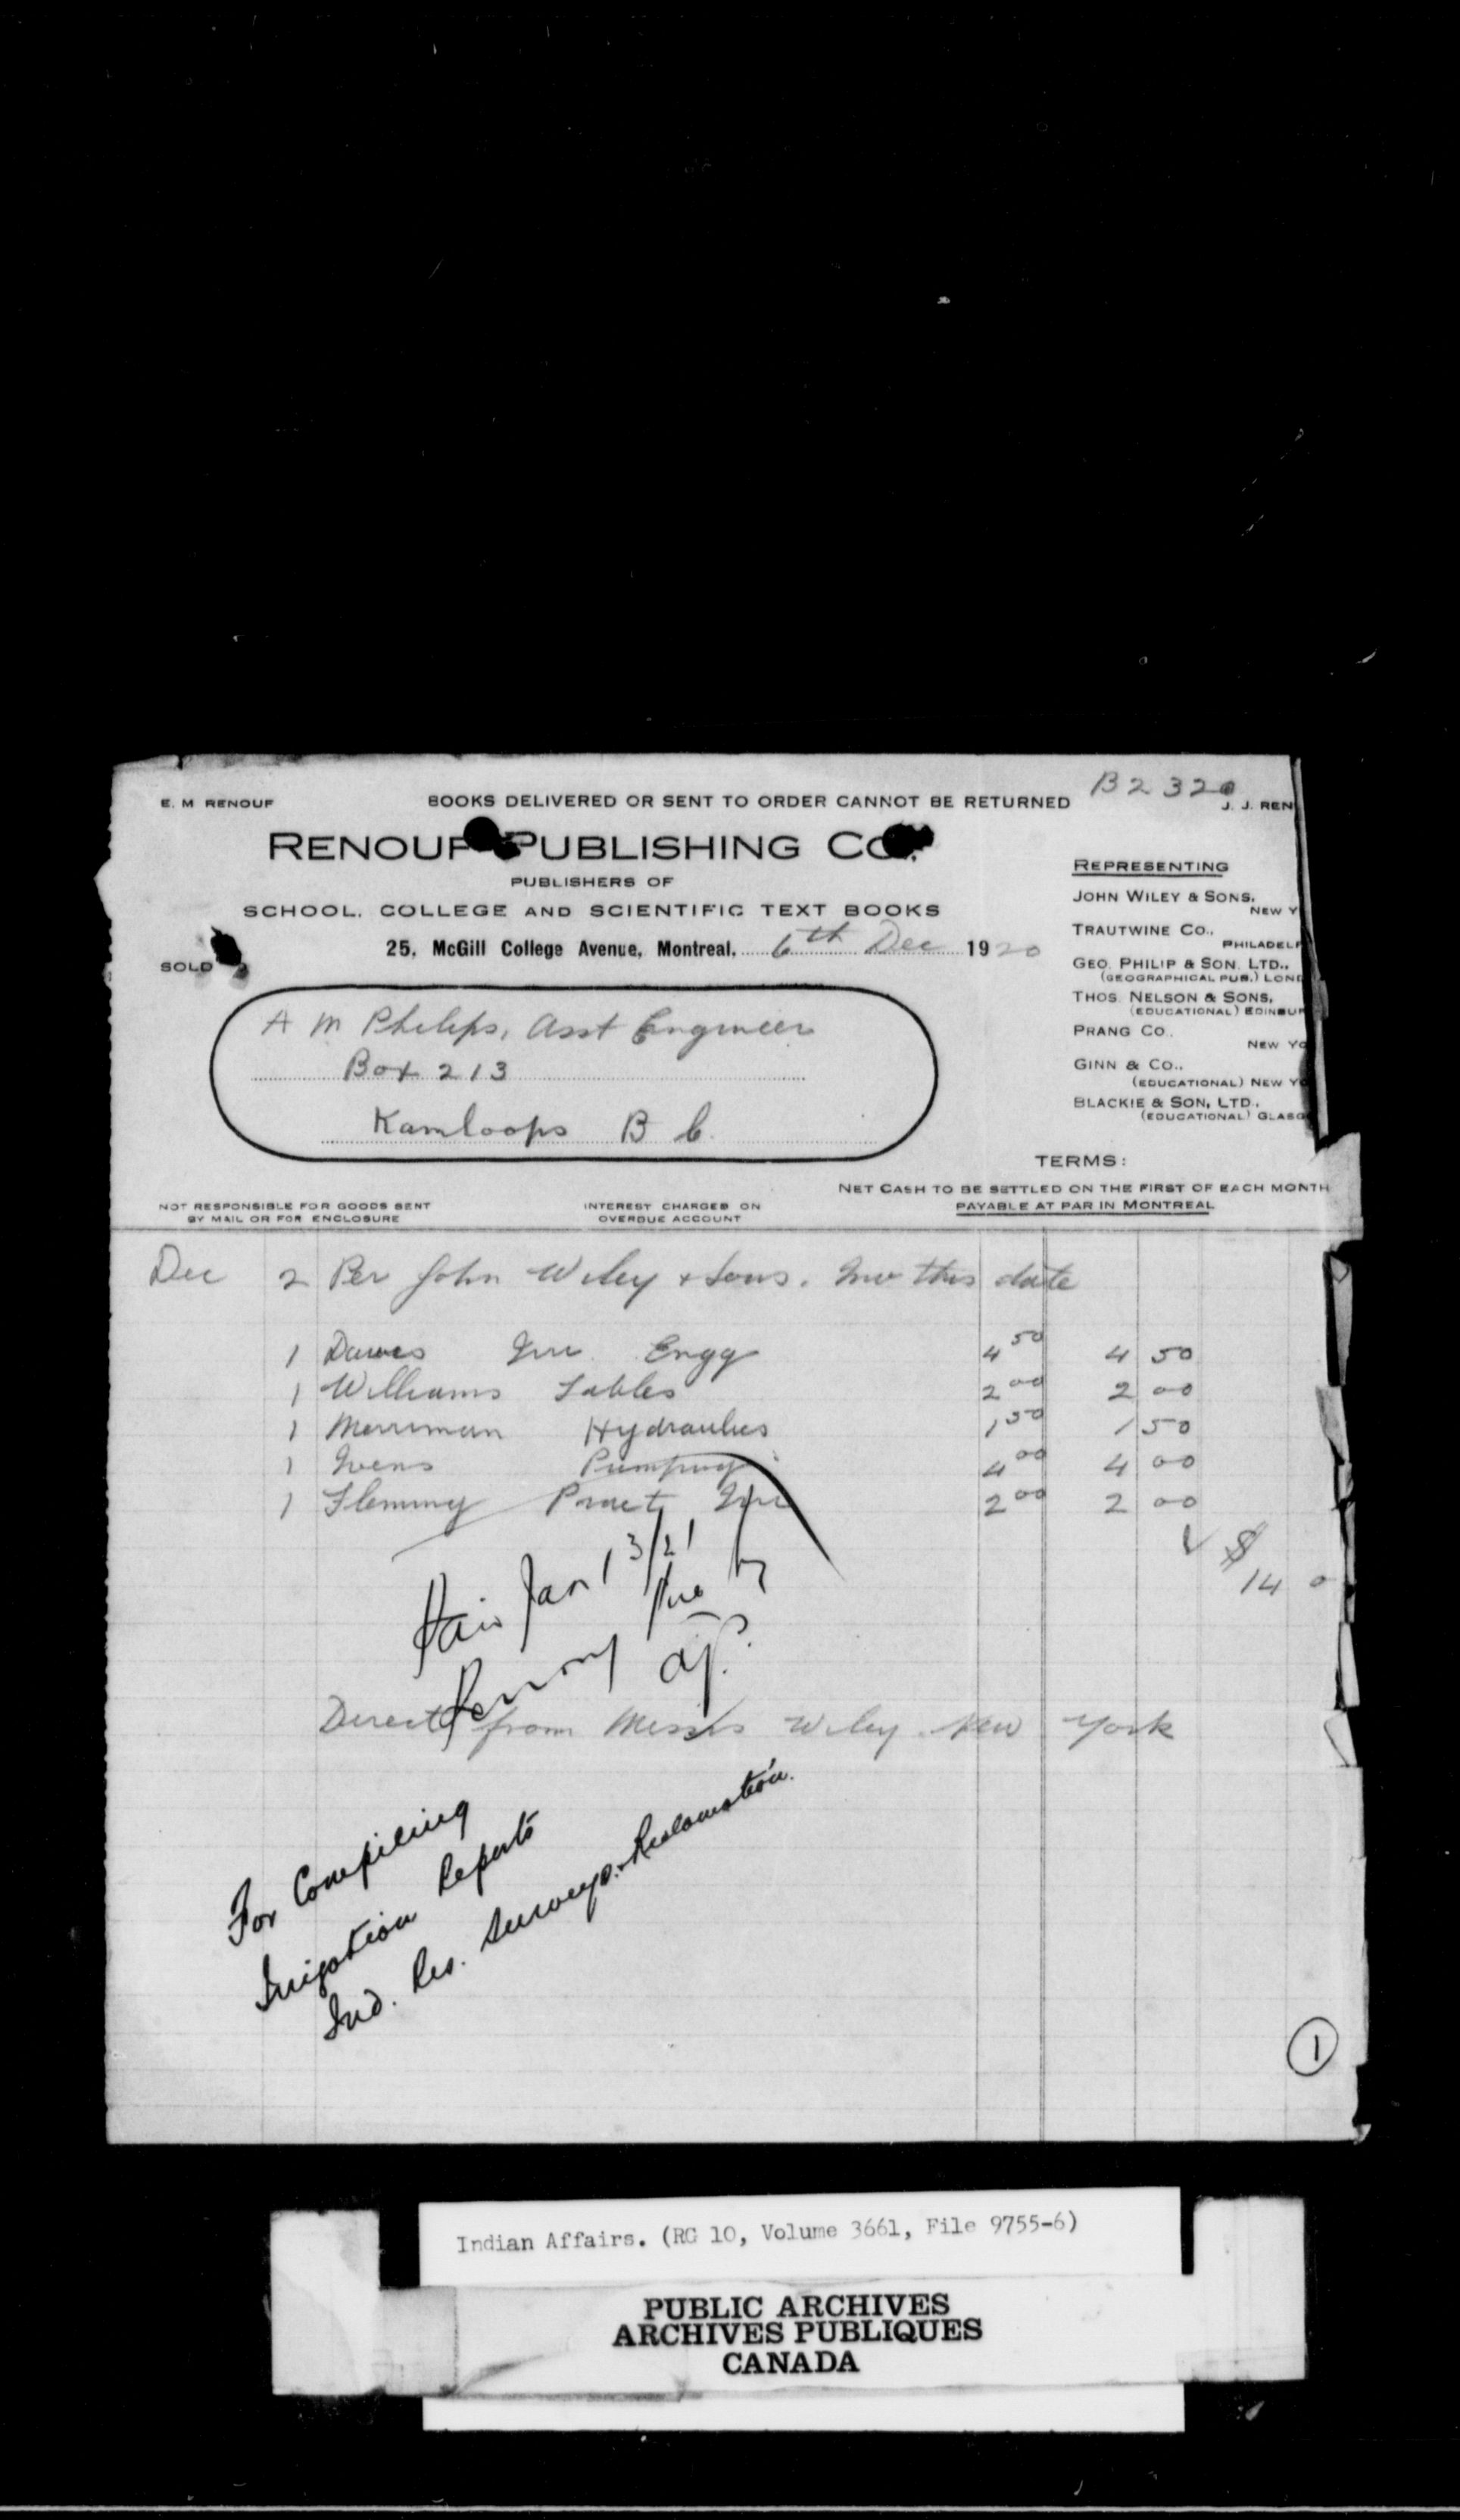 B2320
E. M RENOUF BOOKS DELIVERED OR SENT TO ORDER CANNOT BE RETURNED J. J. REN
RENOUF PUBLISHING CO.
PUBLISHERS OF
SCHOOL, COLLEGE AND SCIENTIFIC TEXT BOOKS
25, McGill College Avenue, Montreal, 6th Dec 1920
SOLD
A M Philips, Asst Engineer
Box 213
Kamloops B C.
REPRESENTING
JOHN WILEY & SONS,
NEW Y
TRAUTWINE CO.,
PHILADELP
GEO. PHILIP & SON. LTD.,
(GEOGRAPHICAL PUB.) LOND
THOS. NELSON & SONS,
(EDUCATIONAL) EDINBUR
PRANG CO.
NEW YO
GINN & CO.,
(EDUCATIONAL) NEW YO
BLACKIE & SON, LTD.,
(EDUCATIONAL) GLASG
TERMS:
NET CASH TO BE SETTLED ON THE FIRST OF EACH MONTH
PAYABLE AT PAR IN MONTREAL
NOT RESPONSIBLE FOR GOODS SENT
BY MAIL OR FOR ENCLOSURE
INTEREST CHARGED ON
OVERDUE ACCOUNT
Dec 2 Per John Wiley & Sons. Inv this date
1 Irr. Engg 4 50 4 50
1 Williams Tables 2 00 2 00
1 Merriman Hydraulics 1 50 1 50
1 Ivens Pumping 4 00 4 00
1 Flemming Pract Irr 2 00 2 00
$
14 0
Jan 13/21
Direct from Messrs Wiley New York
For Compiling
Irrigation Reports
Ind. Res. Surveys. Reclamation.
1
Indian Affairs. (RG 10, Volume 3661, File 9755-6)
PUBLIC ARCHIVES
ARCHIVES PUBLIQUES
CANADA